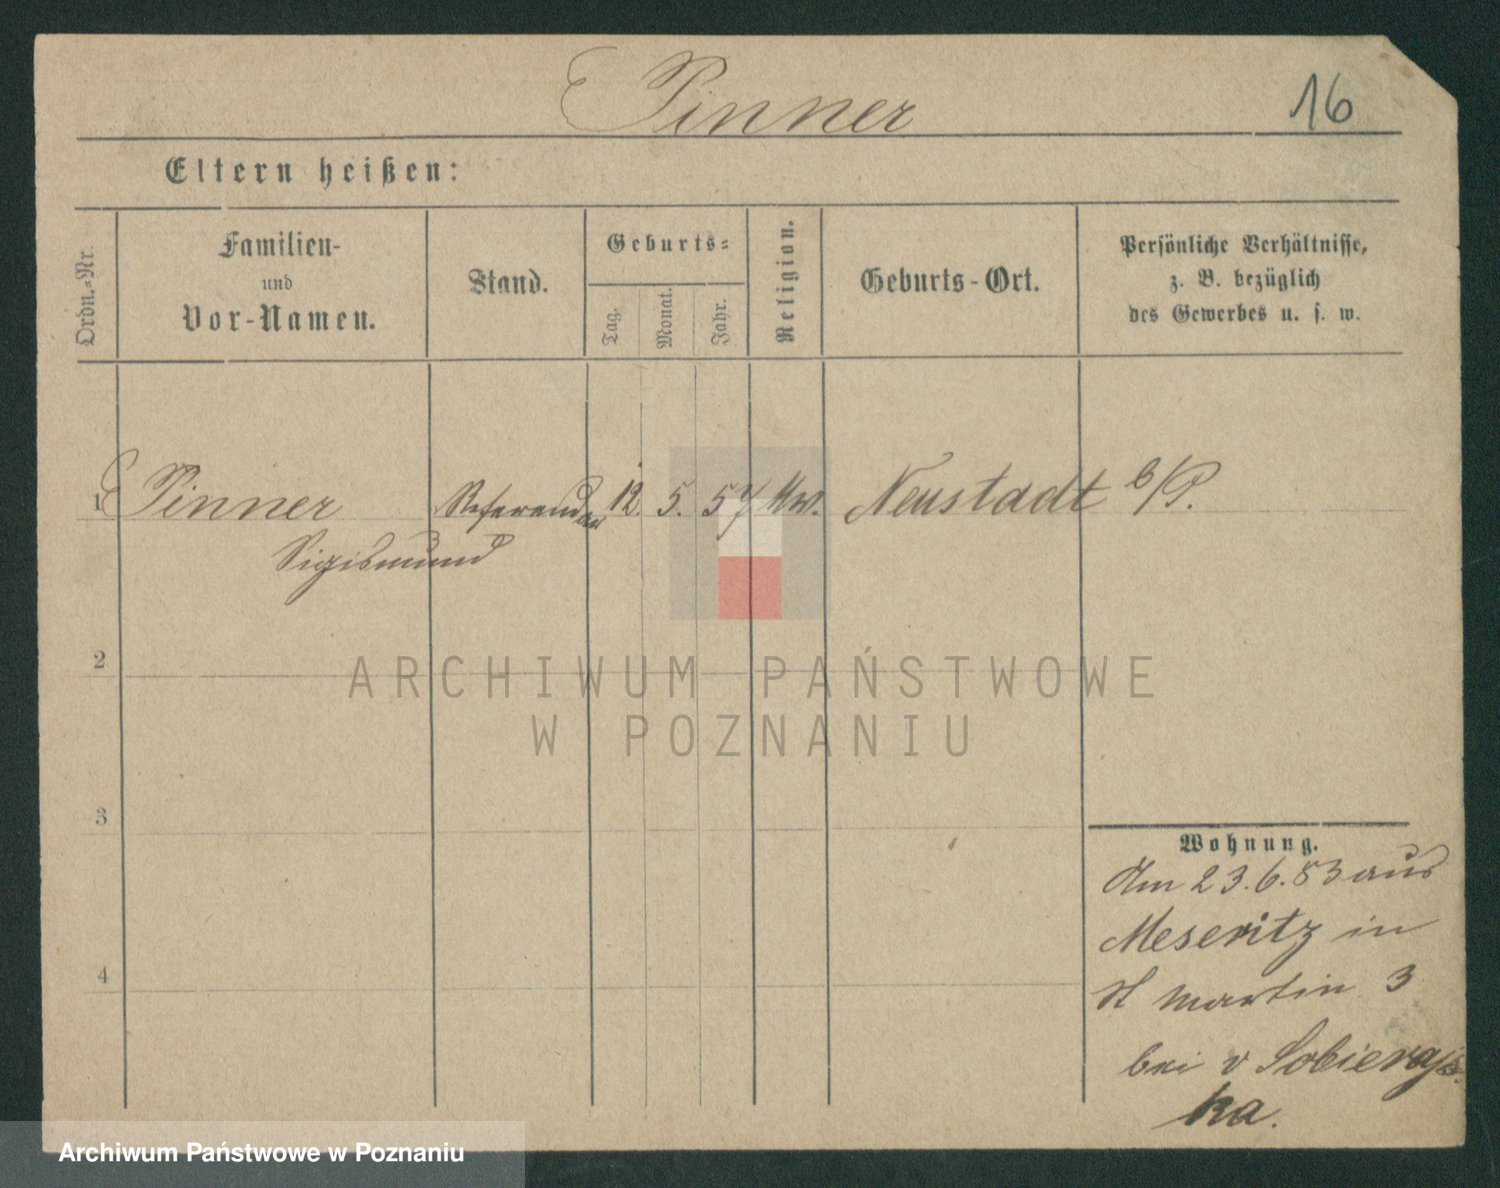 Pinner
16
Eltern heißen:
Ordn.-Nr.
Familien-
und
Vor-Namen.
Stand.
Geburts-
Tag.
Monat.
Jahr.
Religion.
Geburts-Ort.
Persönliche Verhältnisse,
z. B. bezüglich
des Gewerbes u. s. w.
1 Pinner Referendar 12. 5. 57 Neustadt b/P.
Sigismund
2
3
4
Wohnung.
Am 23.6.83 aus
Meseritz in
St Martin 3
bei v Sobierajs
ka.
ARCHIWUM PAŃSTWOWE
W POZNANIU
Archiwum Państwowe w Poznaniu